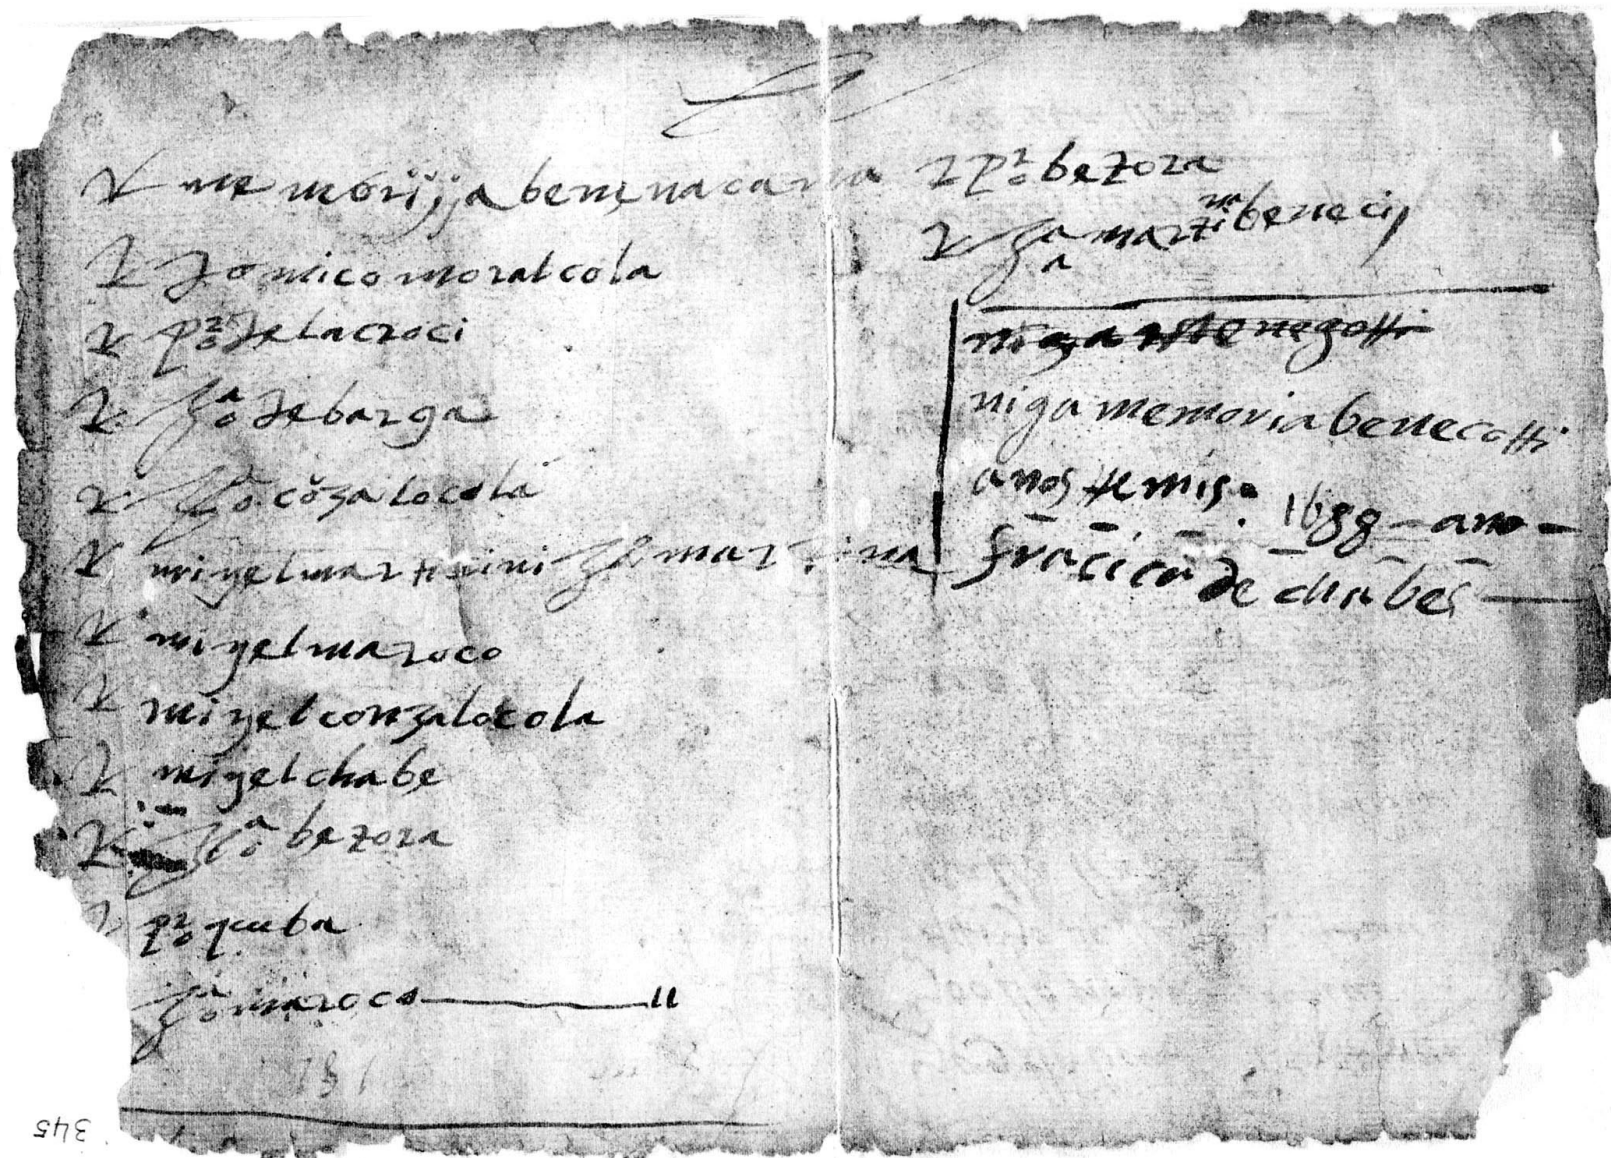 memorijja benenacana
domico moralcola
po delacroci
Joa debarga
Joa cõzalocola
migel martini Joa martina
migel maroco
migel conzalocola
migel chabe
bezora
po puba
maroco 11
po bezora
martina beneci
niga
niga memoria benecotti
anos temis. 1688 ano
fracica de chabes
345